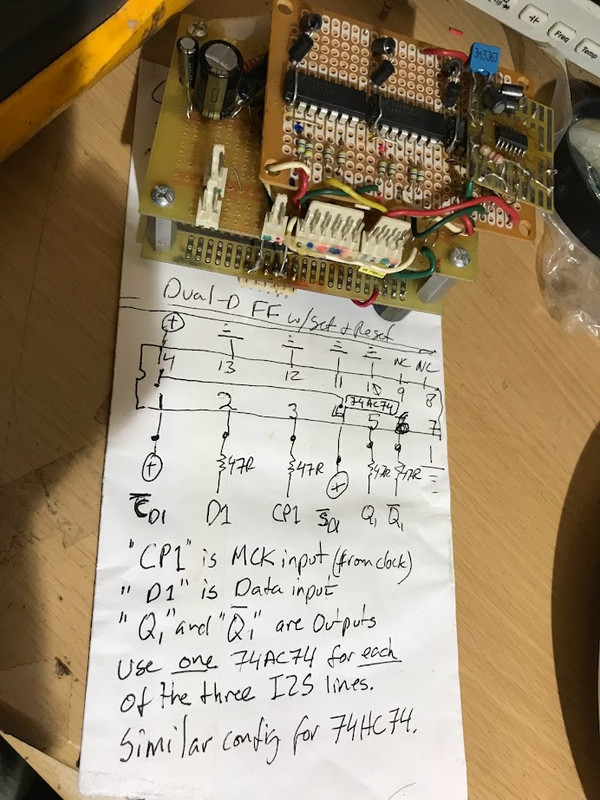 Freq
Temp
Dual-D FF w/set + Reset
14 13 12 11 10 9 8
NC NC
74AC74
1 2 3 5 6 7
47R 47R 47R 47R
C̅D1 D1 CP1 S̅D1 Q1 Q̅1
"CP1" is MCK input (from clock)
"D1" is Data input
"Q1" and "Q̅1" are Outputs
Use one 74AC74 for each
of the three I2S lines.
Similar config for 74HC74.